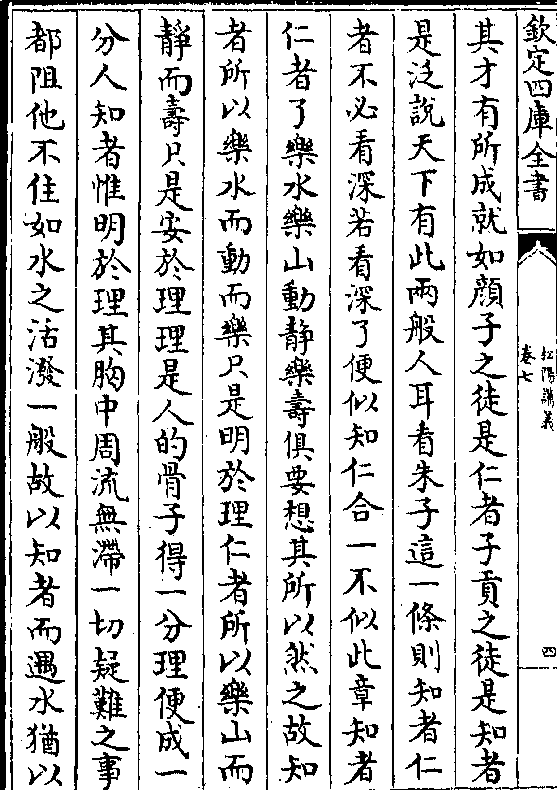 欽定四庫全書
松陽講義
卷七
四
其才有所成就如顔子之徒是仁者子貢之徒是知者
是泛說天下有此兩般人耳看朱子這一條則知者仁
者不必看深若看深了便似知仁合一不似此章知者
仁者了樂水樂山動静樂壽俱要想其所以然之故知
者所以樂水而動而樂只是明於理仁者所以樂山而
静而壽只是安於理理是人的骨子得一分理便成一
分人知者惟明於理其胸中周流無滯一切疑難之事
都阻他不住如水之活潑一般故以知者而遇水猶以